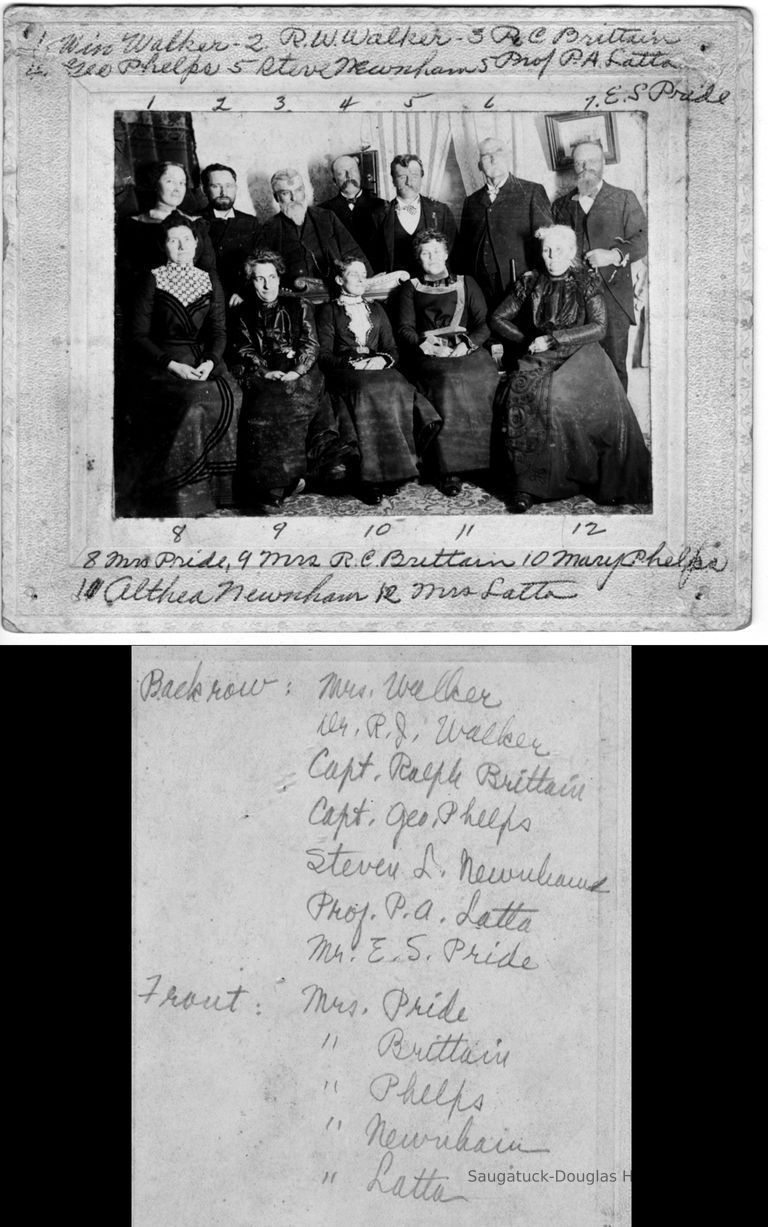 1 Win Walker - 2. R.W. Walker - 3 R.C Brittain
Geo Phelps 5 Steve Newnham 5 Prof P.A. Latta
7. E.S Pride
1 2 3. 4 5 6
8 9 10 11 12
8 Mrs Pride, 9 Mrs R.C. Brittain 10 Mary Phelps
11 Althea Newnham 12 Mrs Latta
Back row: Mrs. Walker
Dr. R.J. Walker
Capt. Ralph Brittain
Capt. Geo. Phelps
Steven L. Newnham
Prof. P.A. Latta
Mr. E.S. Pride
Front: Mrs. Pride
" Brittain
" Phelps
" Newnham
" Latta
Saugatuck-Douglas H